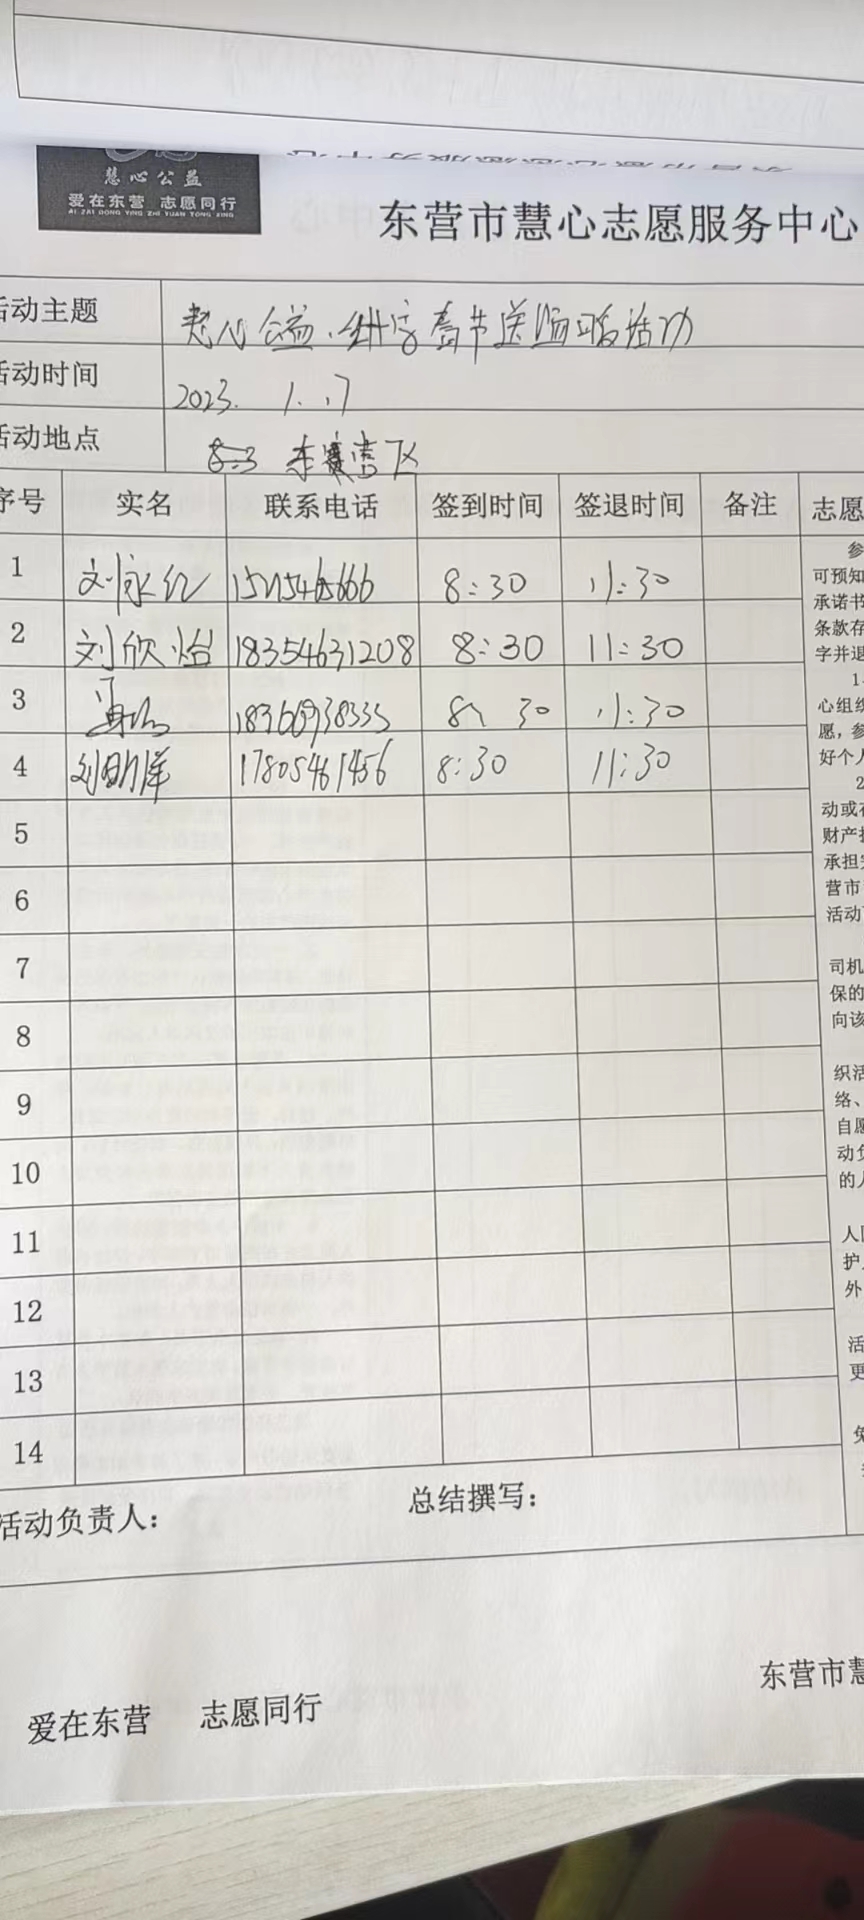 慧心公益
爱在东营 志愿同行
AI ZAI DONG YING ZHI YUAN TONG XING
东营市慧心志愿服务中心
活动主题
慧心公益、 春节送温暖活动
活动时间
2023. 1. 17
活动地点
东营区
序号 实名 联系电话 签到时间 签退时间 备注 志愿
1 刘 8:30 11:30
2 刘欣怡 18354631208 8:30 11:30
3 18366938333 8: 30 11:30
4 刘明洋 17805461456 8:30 11:30
5
6
7
8
9
10
11
12
13
14
参
可预知
承诺书
条款存
字并退
1、
心组织
愿，参
好个人
2
动或在
财产损
承担完
营市
活动
司机
保的
向该
织活
络、
自愿
动负
的人
人
护
外
活
更
免
活动负责人：
总结撰写：
东营市慧
爱在东营 志愿同行